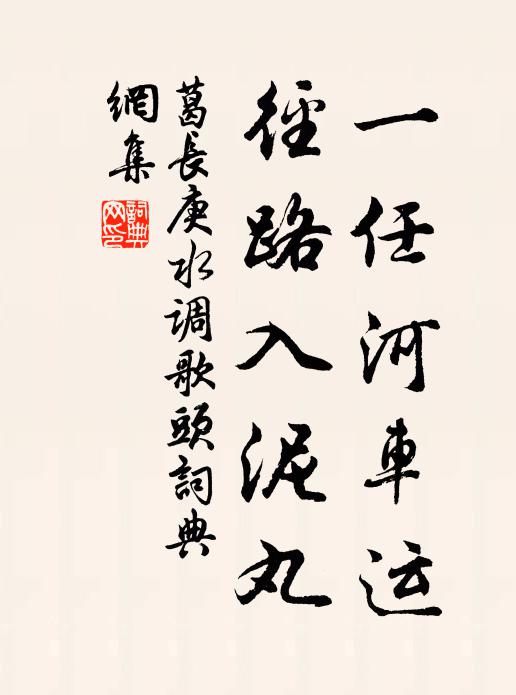 一任河車运
徑路入泥丸
葛長庚水调歌頭詞典
網集
詞典
网印